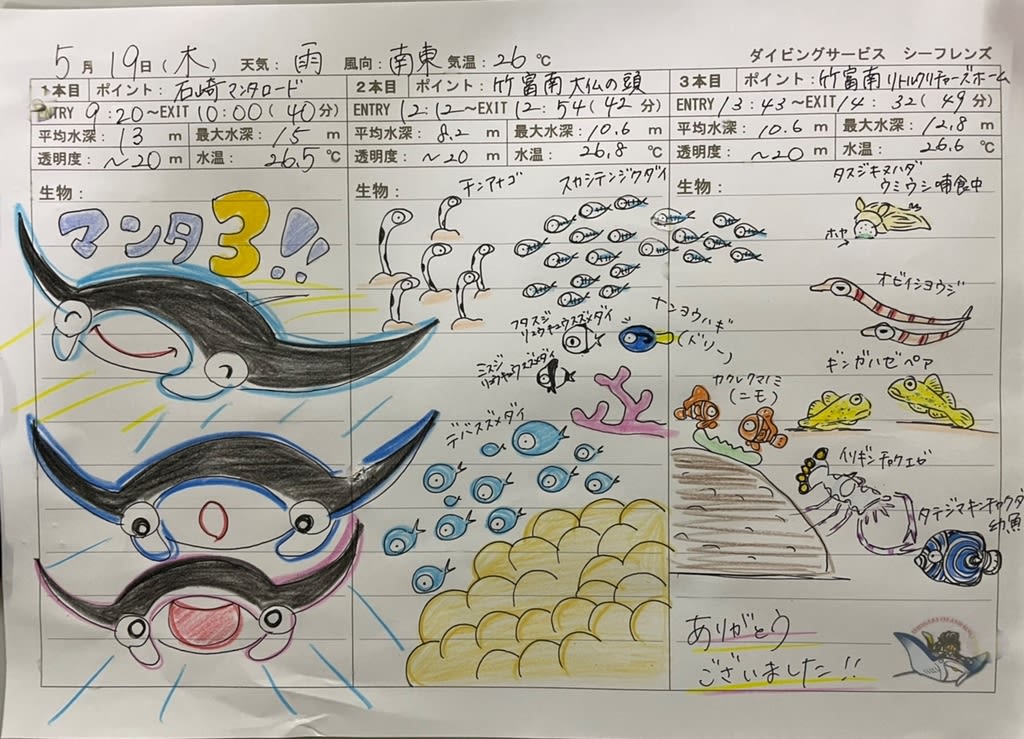 5月19日(木) 天気:雨 風向:南東 気温:26℃ ダイビングサービス シーフレンズ
1本目 ポイント:石崎マンタロード
ENTRY 9:20～EXIT 10:00(40分)
平均水深:13 m 最大水深:15 m
透明度:～20 m 水温:26.5℃
生物:
マンタ3!!
2本目 ポイント:竹富南 大仏の頭
ENTRY 12:12～EXIT 12:54(42分)
平均水深:8.2 m 最大水深:10.6 m
透明度:～20 m 水温:26.8℃
生物:
チンアナゴ
スカシテンジクダイ
フタスジ
リュウキュウスズメダイ
ナンヨウハギ
(ドリー)
ミスジ
リュウキュウスズメダイ
デバスズメダイ
3本目 ポイント:竹富南 リトルクリチャーズホーム
ENTRY 13:43～EXIT 14:32(49分)
平均水深:10.6 m 最大水深:12.8 m
透明度:～20 m 水温:26.6℃
生物:
タスジキヌハダ
ウミウシ 哺食中
ホヤ
オビイシヨウジ
ギンガハゼペア
カクレクマノミ
(ニモ)
イソギンチャクエビ
タテジマキンチャクダイ
幼魚
ありがとう
ございました!!